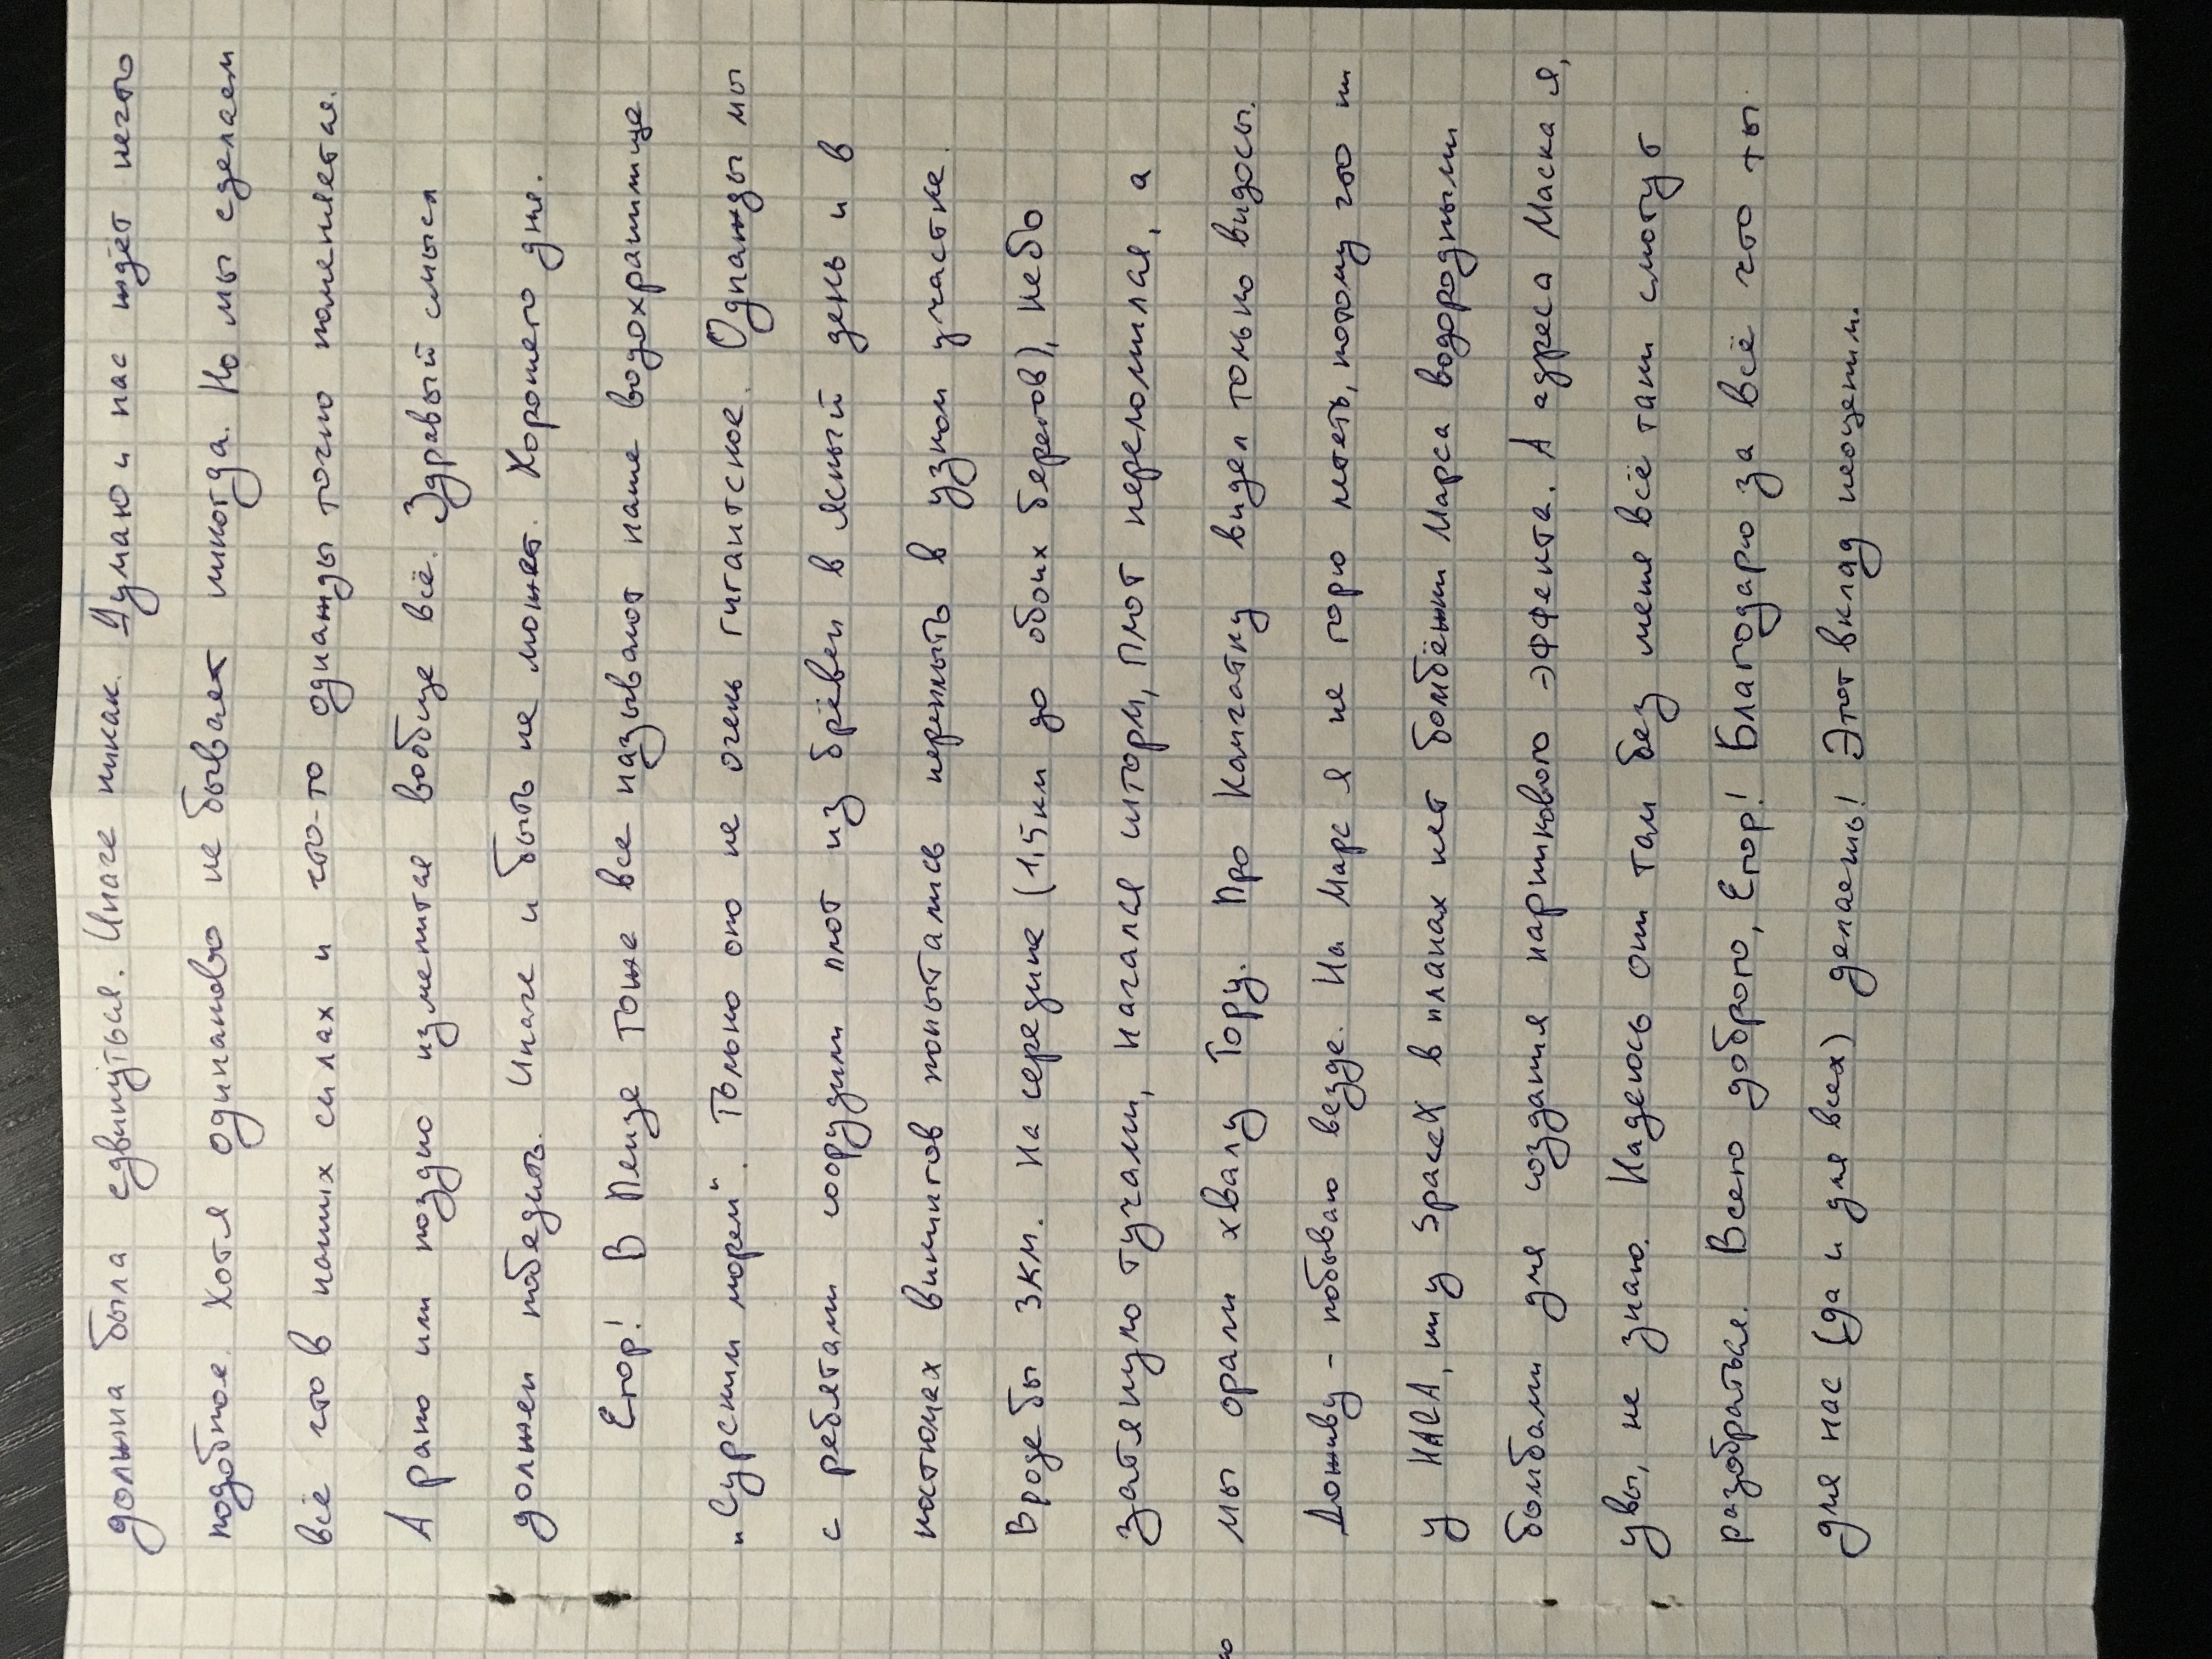 должна была сдвинуться. Иначе никак. Думаю и нас ждёт нечто
подобное. Хотя одинаково не бывает никогда. Но мы сделаем
всё что в наших силах и что-то однажды точно поменяется.
А рано или поздно изменится вообще всё. Здравый смысл
должен победить. Иначе и быть не может. Хорошего дня.
Егор! В Пензе тоже все называют наше водохранилище
„Сурским морем“. Только оно не очень гигантское. Однажды мы
с ребятами соорудили плот из брёвен в ясный день и в
костюмах викингов попытались переплыть в узком участке.
Вроде бы 3км. На середине (1,5км до обоих берегов), небо
затянуло тучами, начался шторм, плот переломился, а
мы орали хвалу Тору. Про Камчатку видел только видосы.
Доживу - побываю везде. На Марс я не горю лететь, потому что ни
у НАСА, ни у SpaceX в планах нет бомбёжки Марса водородными
бомбами для создания парникового эффекта. А адреса Маска я,
увы, не знаю. Надеюсь они там без меня всё таки смогут
разобраться. Всего доброго, Егор! Благодарю за всё что ты
для нас (да и для всех) делаешь! Этот вклад неоценим.